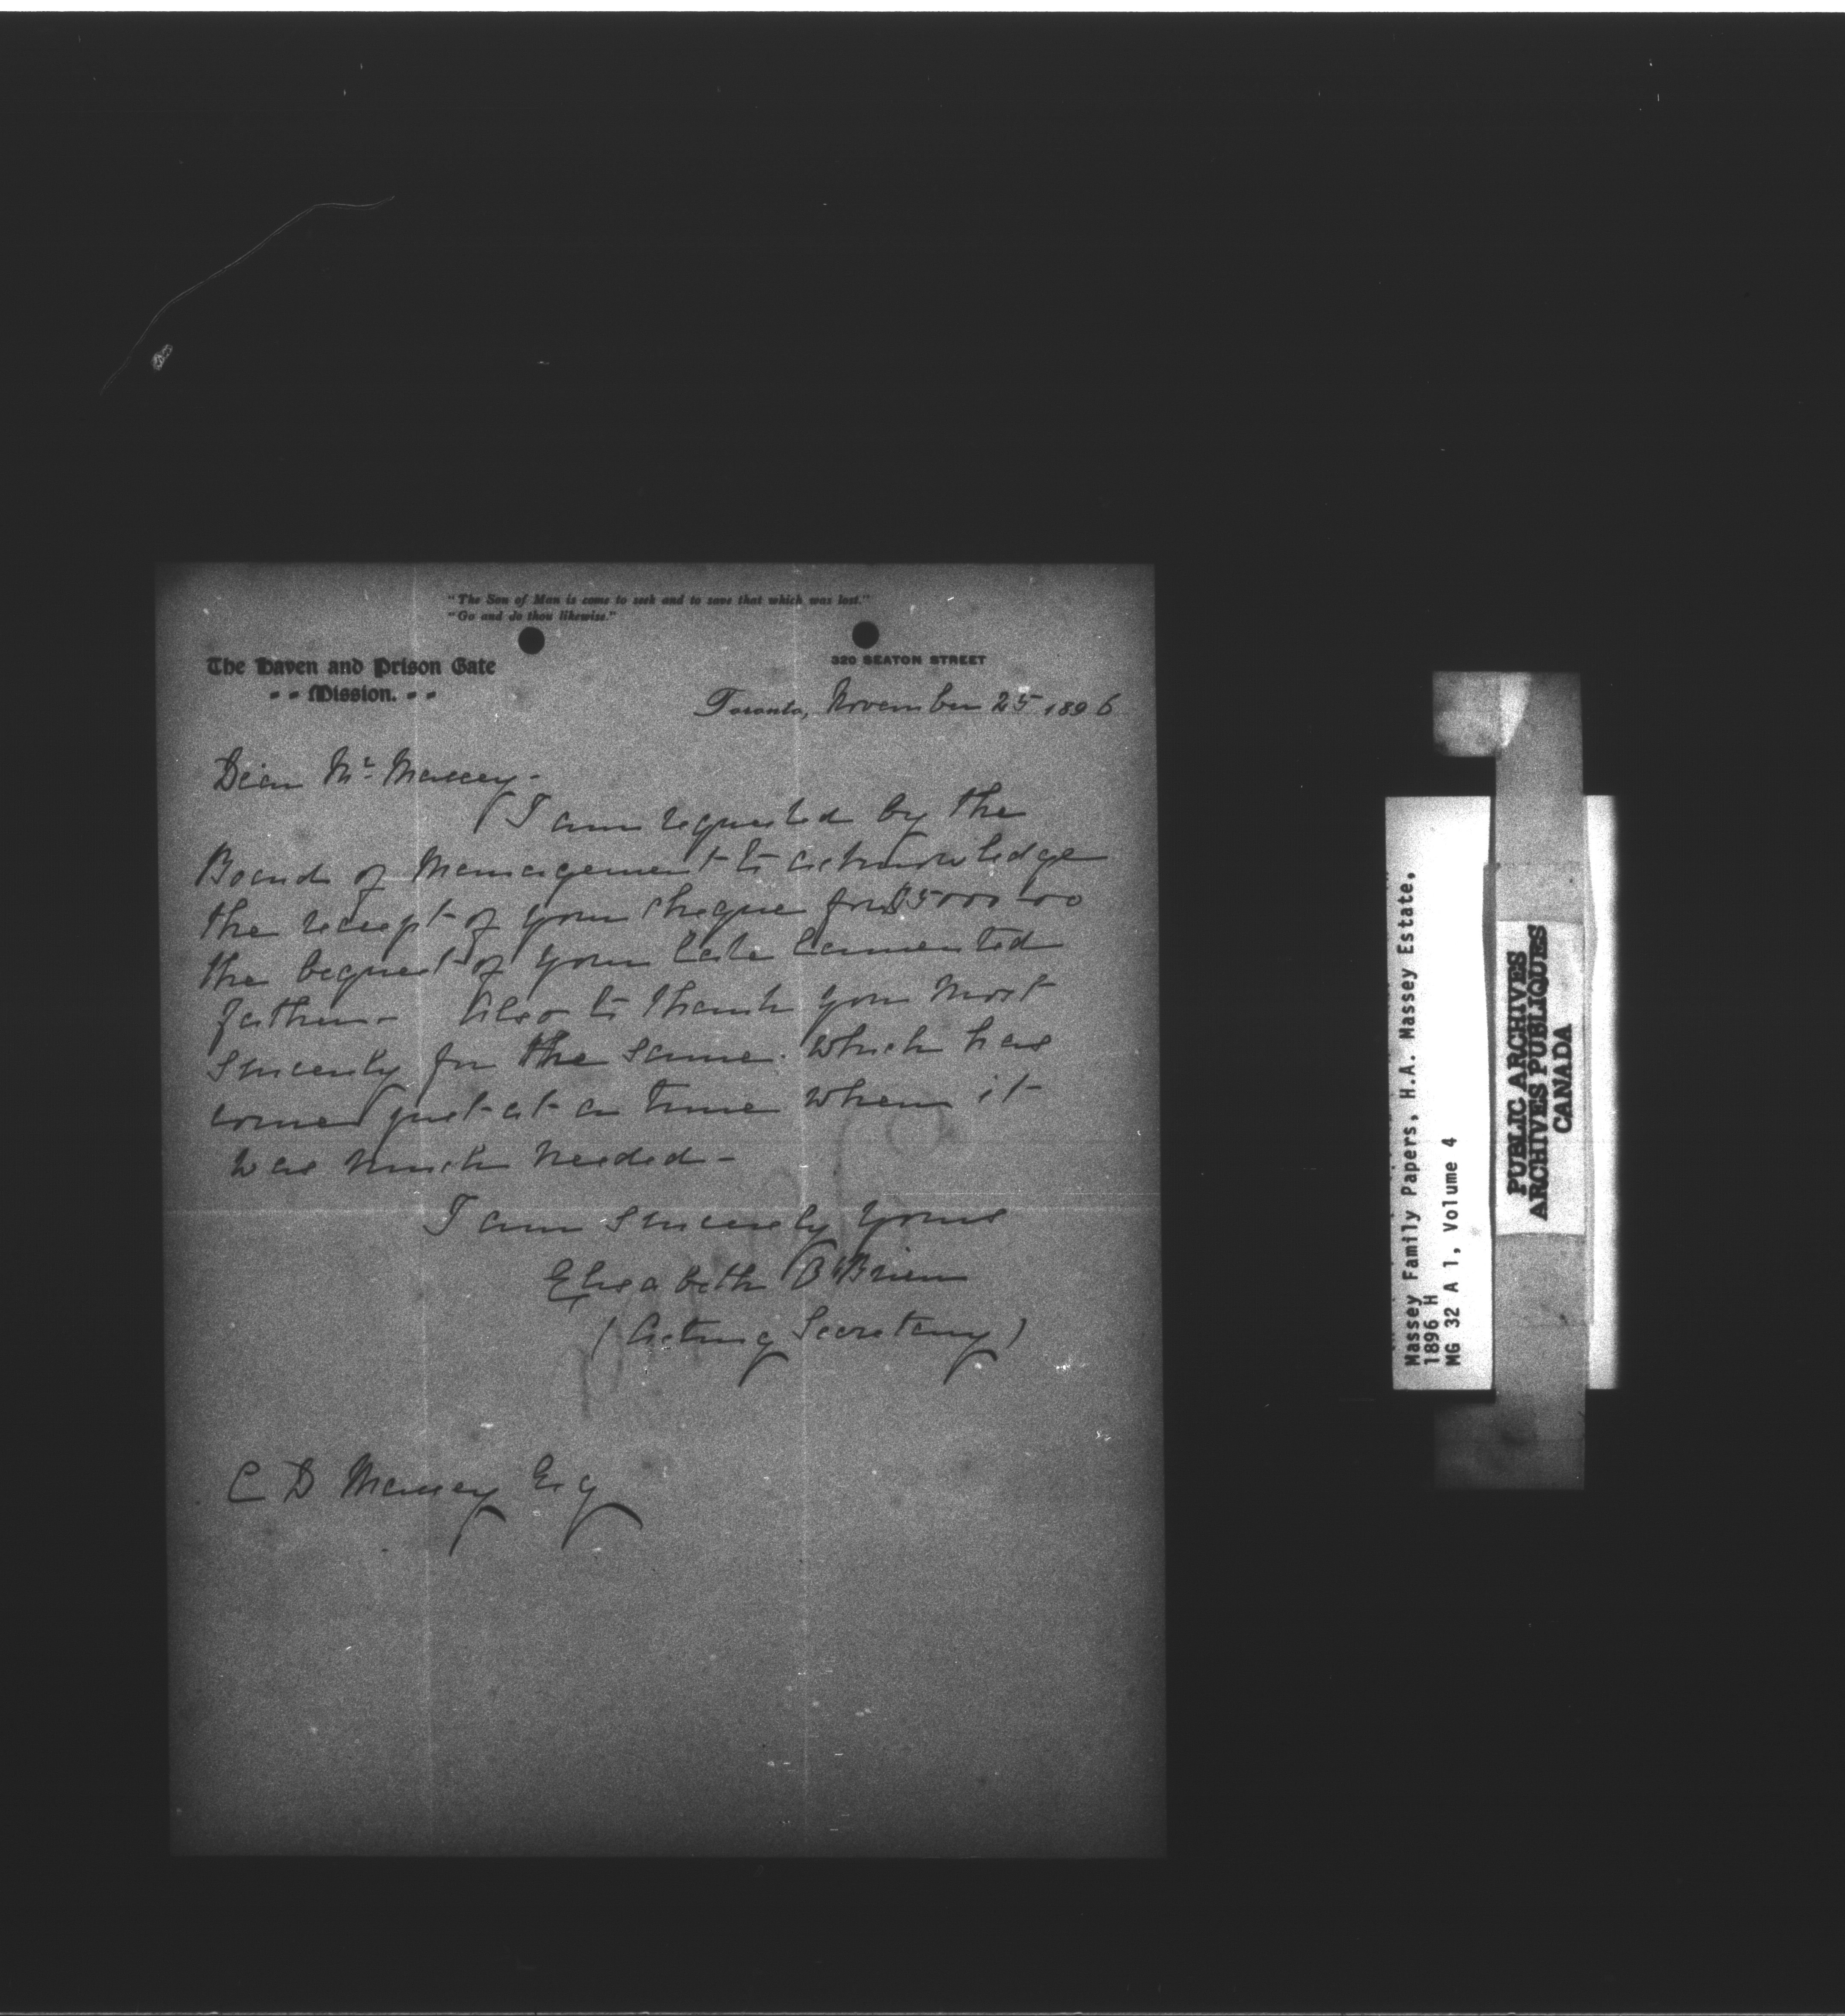 "The Son of Man is come to seek and to save that which was lost."
"Go and do thou likewise."
The Haven and Prison Gate
Mission.
320 SEATON STREET
Toronto, November 25 1896
Dear Mr. Massey -
I am requested by the
Board of Management to acknowledge
the receipt of your cheque for $5000
the bequest of your late lamented
father - Also to thank you most
sincerely for the same. which has
comes just at a time when it
was much needed -
I am sincerely yours
Elisabeth O'Brien
(Acting Secretary)
C D Massey Esq
Massey Family Papers, H.A. Massey Estate,
1896 H
MG 32 A 1, Volume 4
PUBLIC ARCHIVES
ARCHIVES PUBLIQUES
CANADA